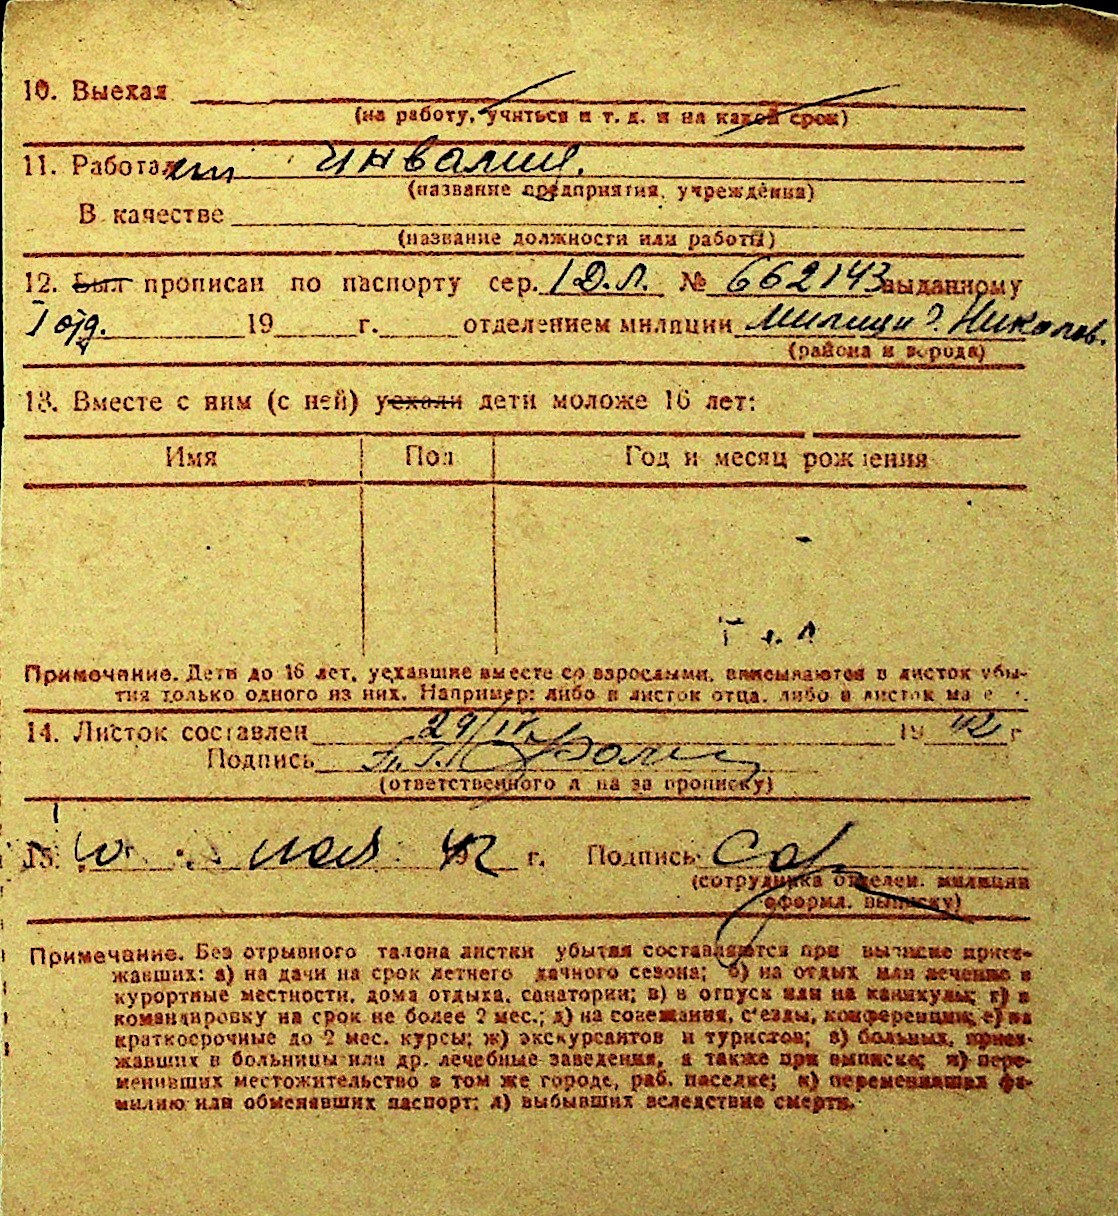 10. Выехал
(на работу, учиться и т. д. и на какой срок)
11. Работал инвалид.
(название предприятия, учреждения)
В качестве
(название должности или работы)
12. Был прописан по паспорту сер. 1 Д.Л. № 662143 выданному
1 отд. 19 г. отделением милиции милиции г. Николаев.
(района и города)
13. Вместе с ним (с ней) уехали дети моложе 16 лет:
Имя Пол Год и месяц рождения
Примечание. Дети до 16 лет, уехавшие вместе со взрослыми, вписываются в листок убы-
тия только одного из них. Например: либо в листок отца, либо в листок
14. Листок составлен 29/IV 1942 г
Подпись
(ответственного л на за прописку)
15. 10 мая 42 г. Подпись
(сотрудника отделен. милиции
оформл. выписку)
Примечание. Без отрывного талона листки убытия составляются при выписке приез-
жавших: а) на дачи на срок летнего дачного сезона; б) на отдых или лечение в
курортные местности, дома отдыха, санатории; в) в отпуск или на каникулы; г) в
командировку на срок не более 2 мес.; д) на совещания, с'езды, конференции; е) на
краткосрочные до 2 мес. курсы; ж) экскурсантов и туристов; з) больных, приез-
жавших в больницы или др. лечебные заведения, а также при выписке; и) пере-
менивших местожительство в том же городе, раб. поселке; к) переменивших фа-
милию или обменявших паспорт; л) выбывших вследствие смерти.